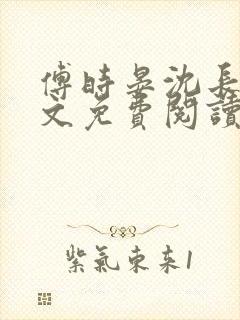 傅時晏沈長
文免費閱讀
紫氣東來1